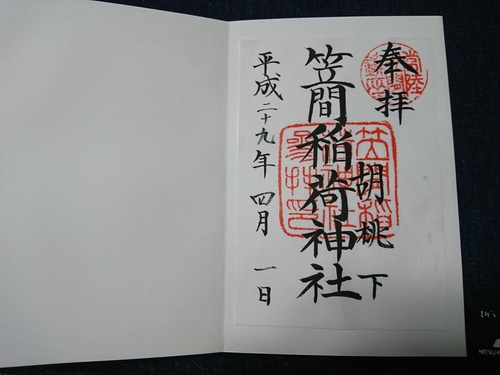 奉拝
胡桃下
笠間稲荷神社
平成二十九年 四月 一日
It's